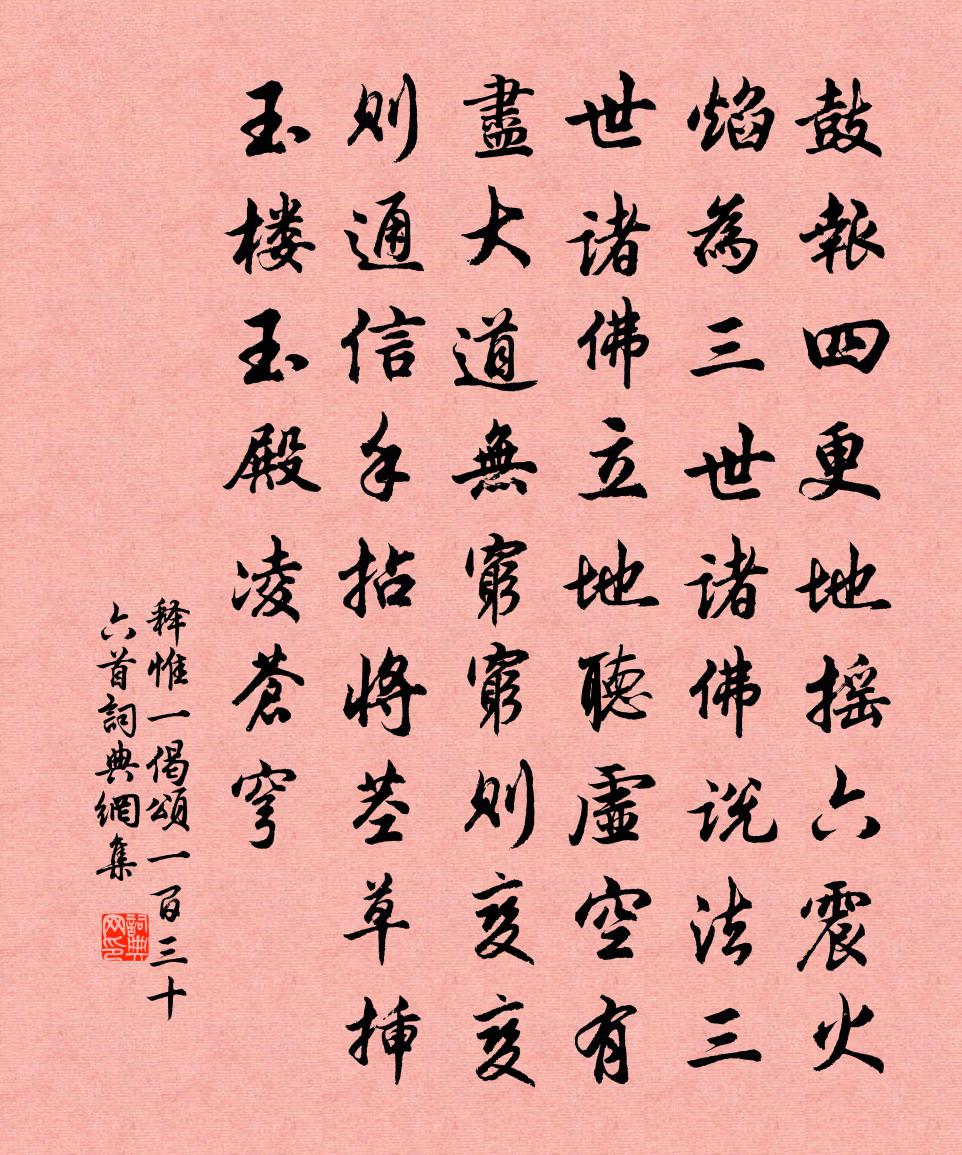 鼓報四更地摇六震火
焰為三世諸佛説法三
世諸佛立地聽虛空有
盡大道無窮窮則变变
則通信手拈將茎草挿
玉楼玉殿凌蒼穹
释惟一偈頌一百三十
六首詞典網集
詞典
网印